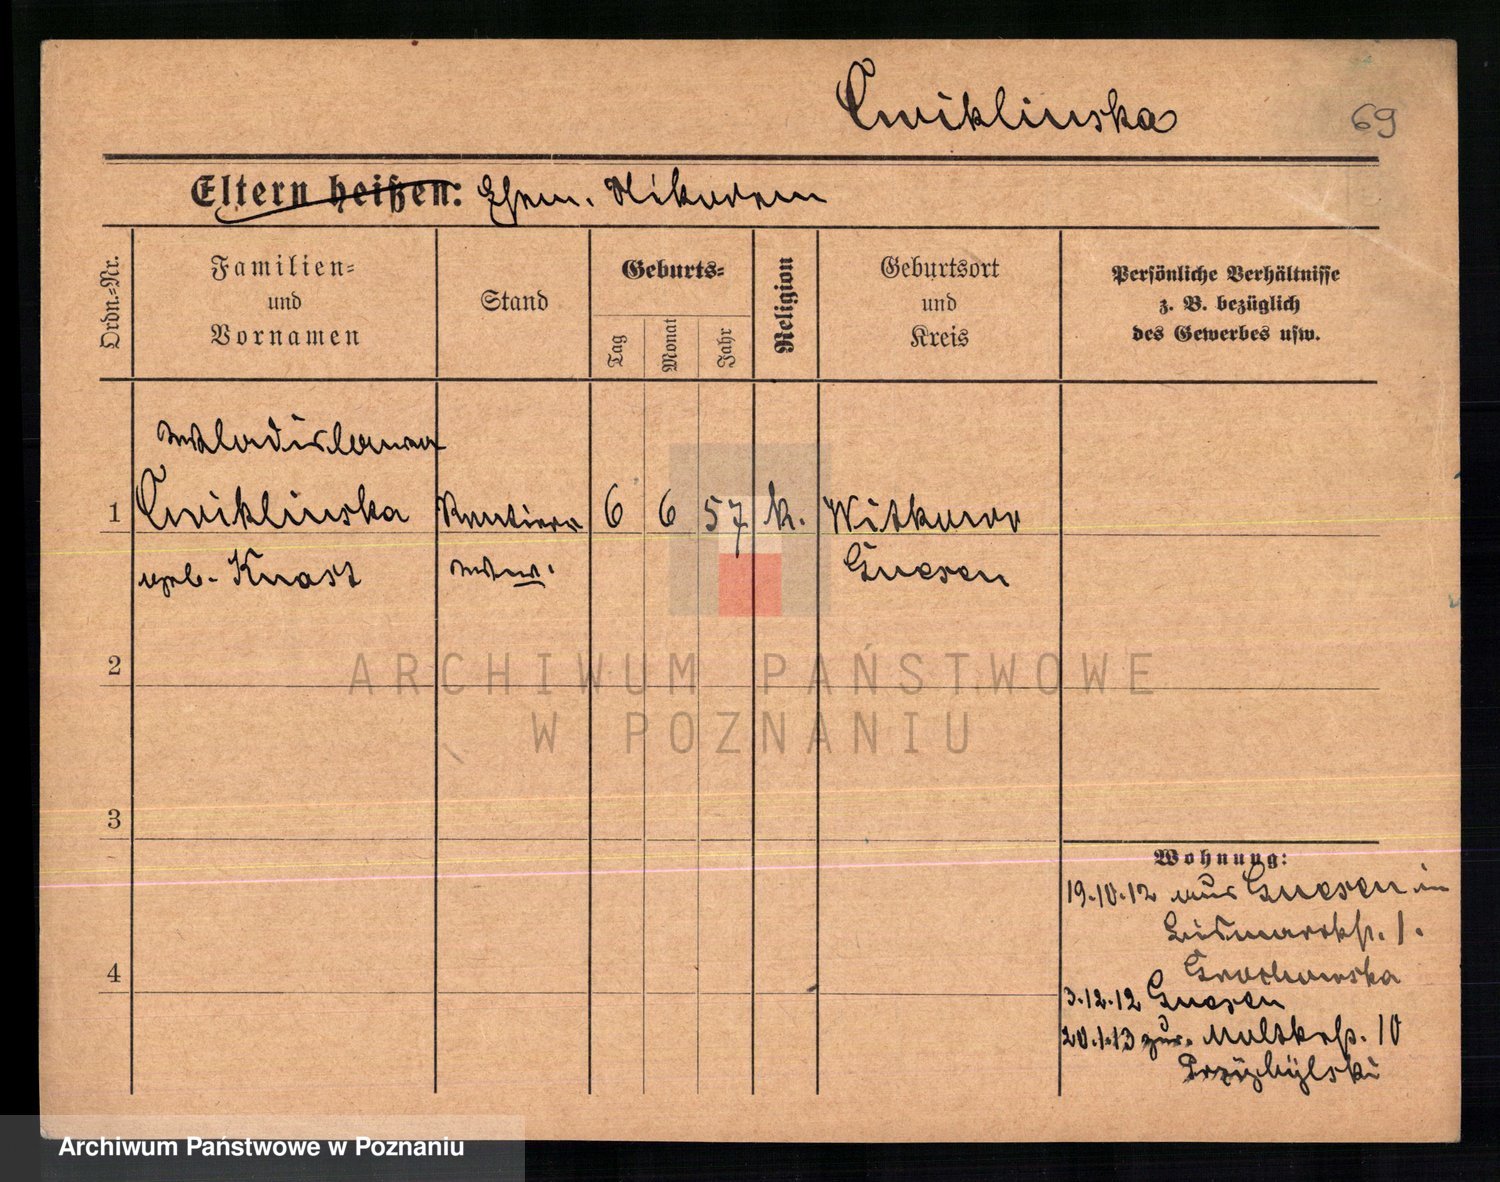 Cwiklinska
69
Eltern heißen: Ehem. Nikodem
Ordn.-Nr.
Familien-
und
Vornamen
Stand
Geburts-
Tag
Monat
Jahr
Religion
Geburtsort
und
Kreis
Persönliche Verhältnisse
z. B. bezüglich
des Gewerbes usw.
Wladislawa
1 Cwiklinska Rentiere 6 6 57 k. Witkowo
geb. Knast Wtw. Gnesen
2
ARCHIWUM PAŃSTWOWE
W POZNANIU
3
Wohnung:
19.10.12 aus Gnesen in
Bismarckstr. 1.
Grochowska
4
3.12.12 Gnesen
20.1.13 zur. Moltkestr. 10
Przybylski
Archiwum Państwowe w Poznaniu